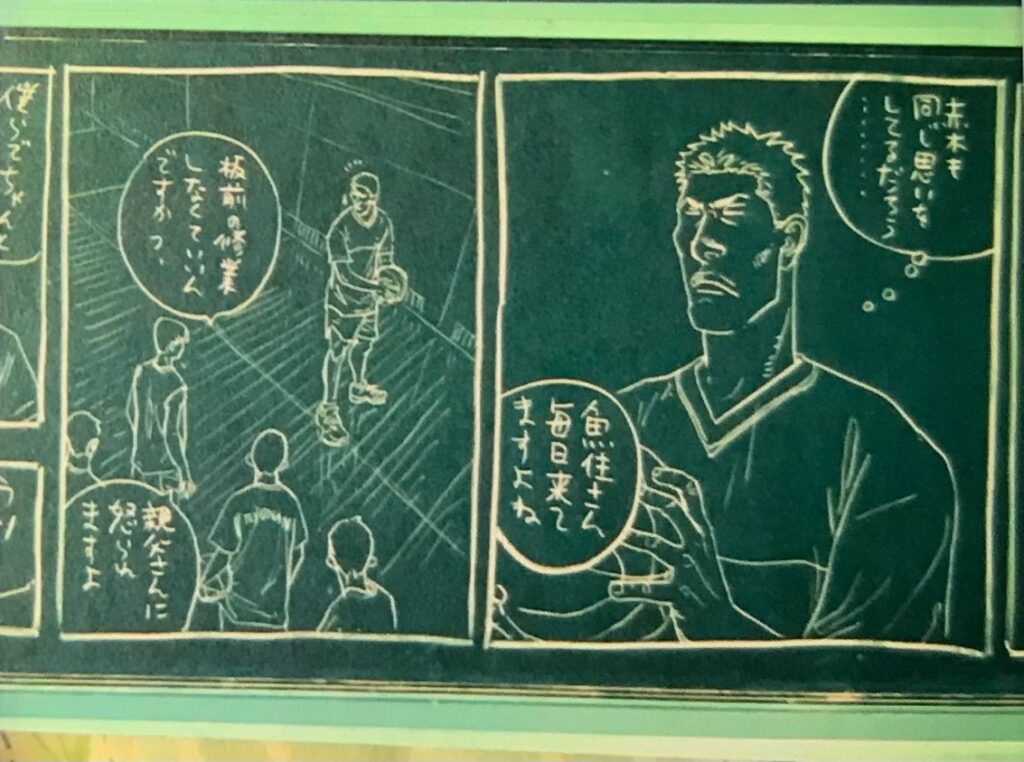 赤木も
同じ思いを
してるだろう
……
魚住さん
毎日来て
ますよね
板前の修業
しなくていいん
ですかっ、
親父さんに
怒られ
ますよ
僕らでちゃんと